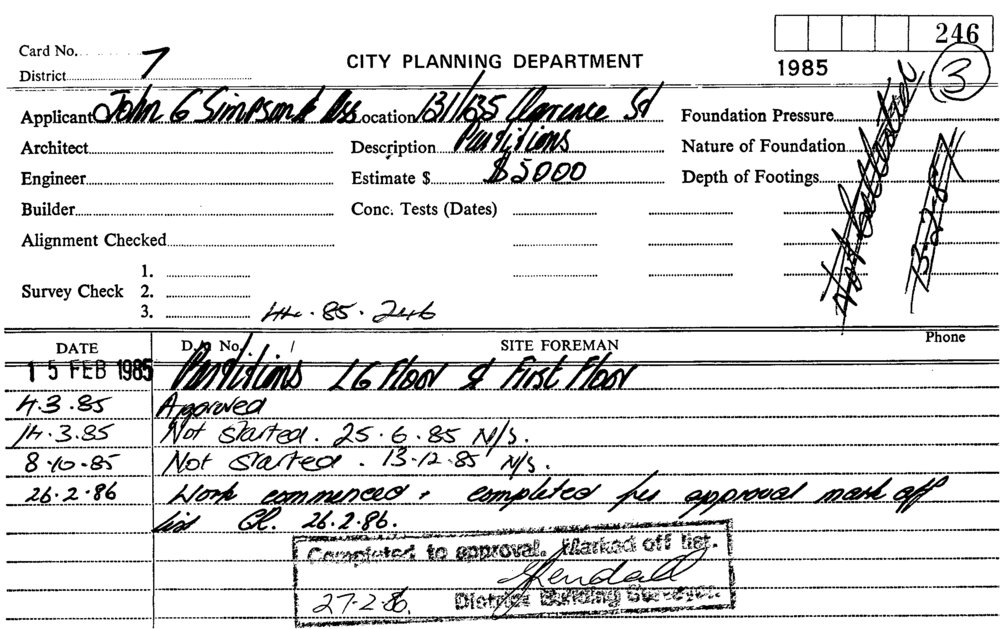 246
Card No. 7
District
CITY PLANNING DEPARTMENT
1985
3
Applicant John G Simpson & Ass Location 131/135 Clarence St Foundation Pressure
Architect Description Partitions Nature of Foundation
Engineer Estimate $ $5000 Depth of Footings
Builder Conc. Tests (Dates)
Alignment Checked
13-2-87
1.
Survey Check 2.
3.
44·85·246
DATE D.A. No. / SITE FOREMAN Phone
15 FEB 1985 Partitions LG Floor & First Floor
4.3.85 Approved
14.3.85 Not started. 25.6.85 N/S.
8.10.85 Not started. 13.12.85 N/S.
26.2.86 Work commenced & completed per approval mark off
list 26.2.86.
Completed to approval. Marked off list.
Kendall
27-2-86. District Building Surveyor.